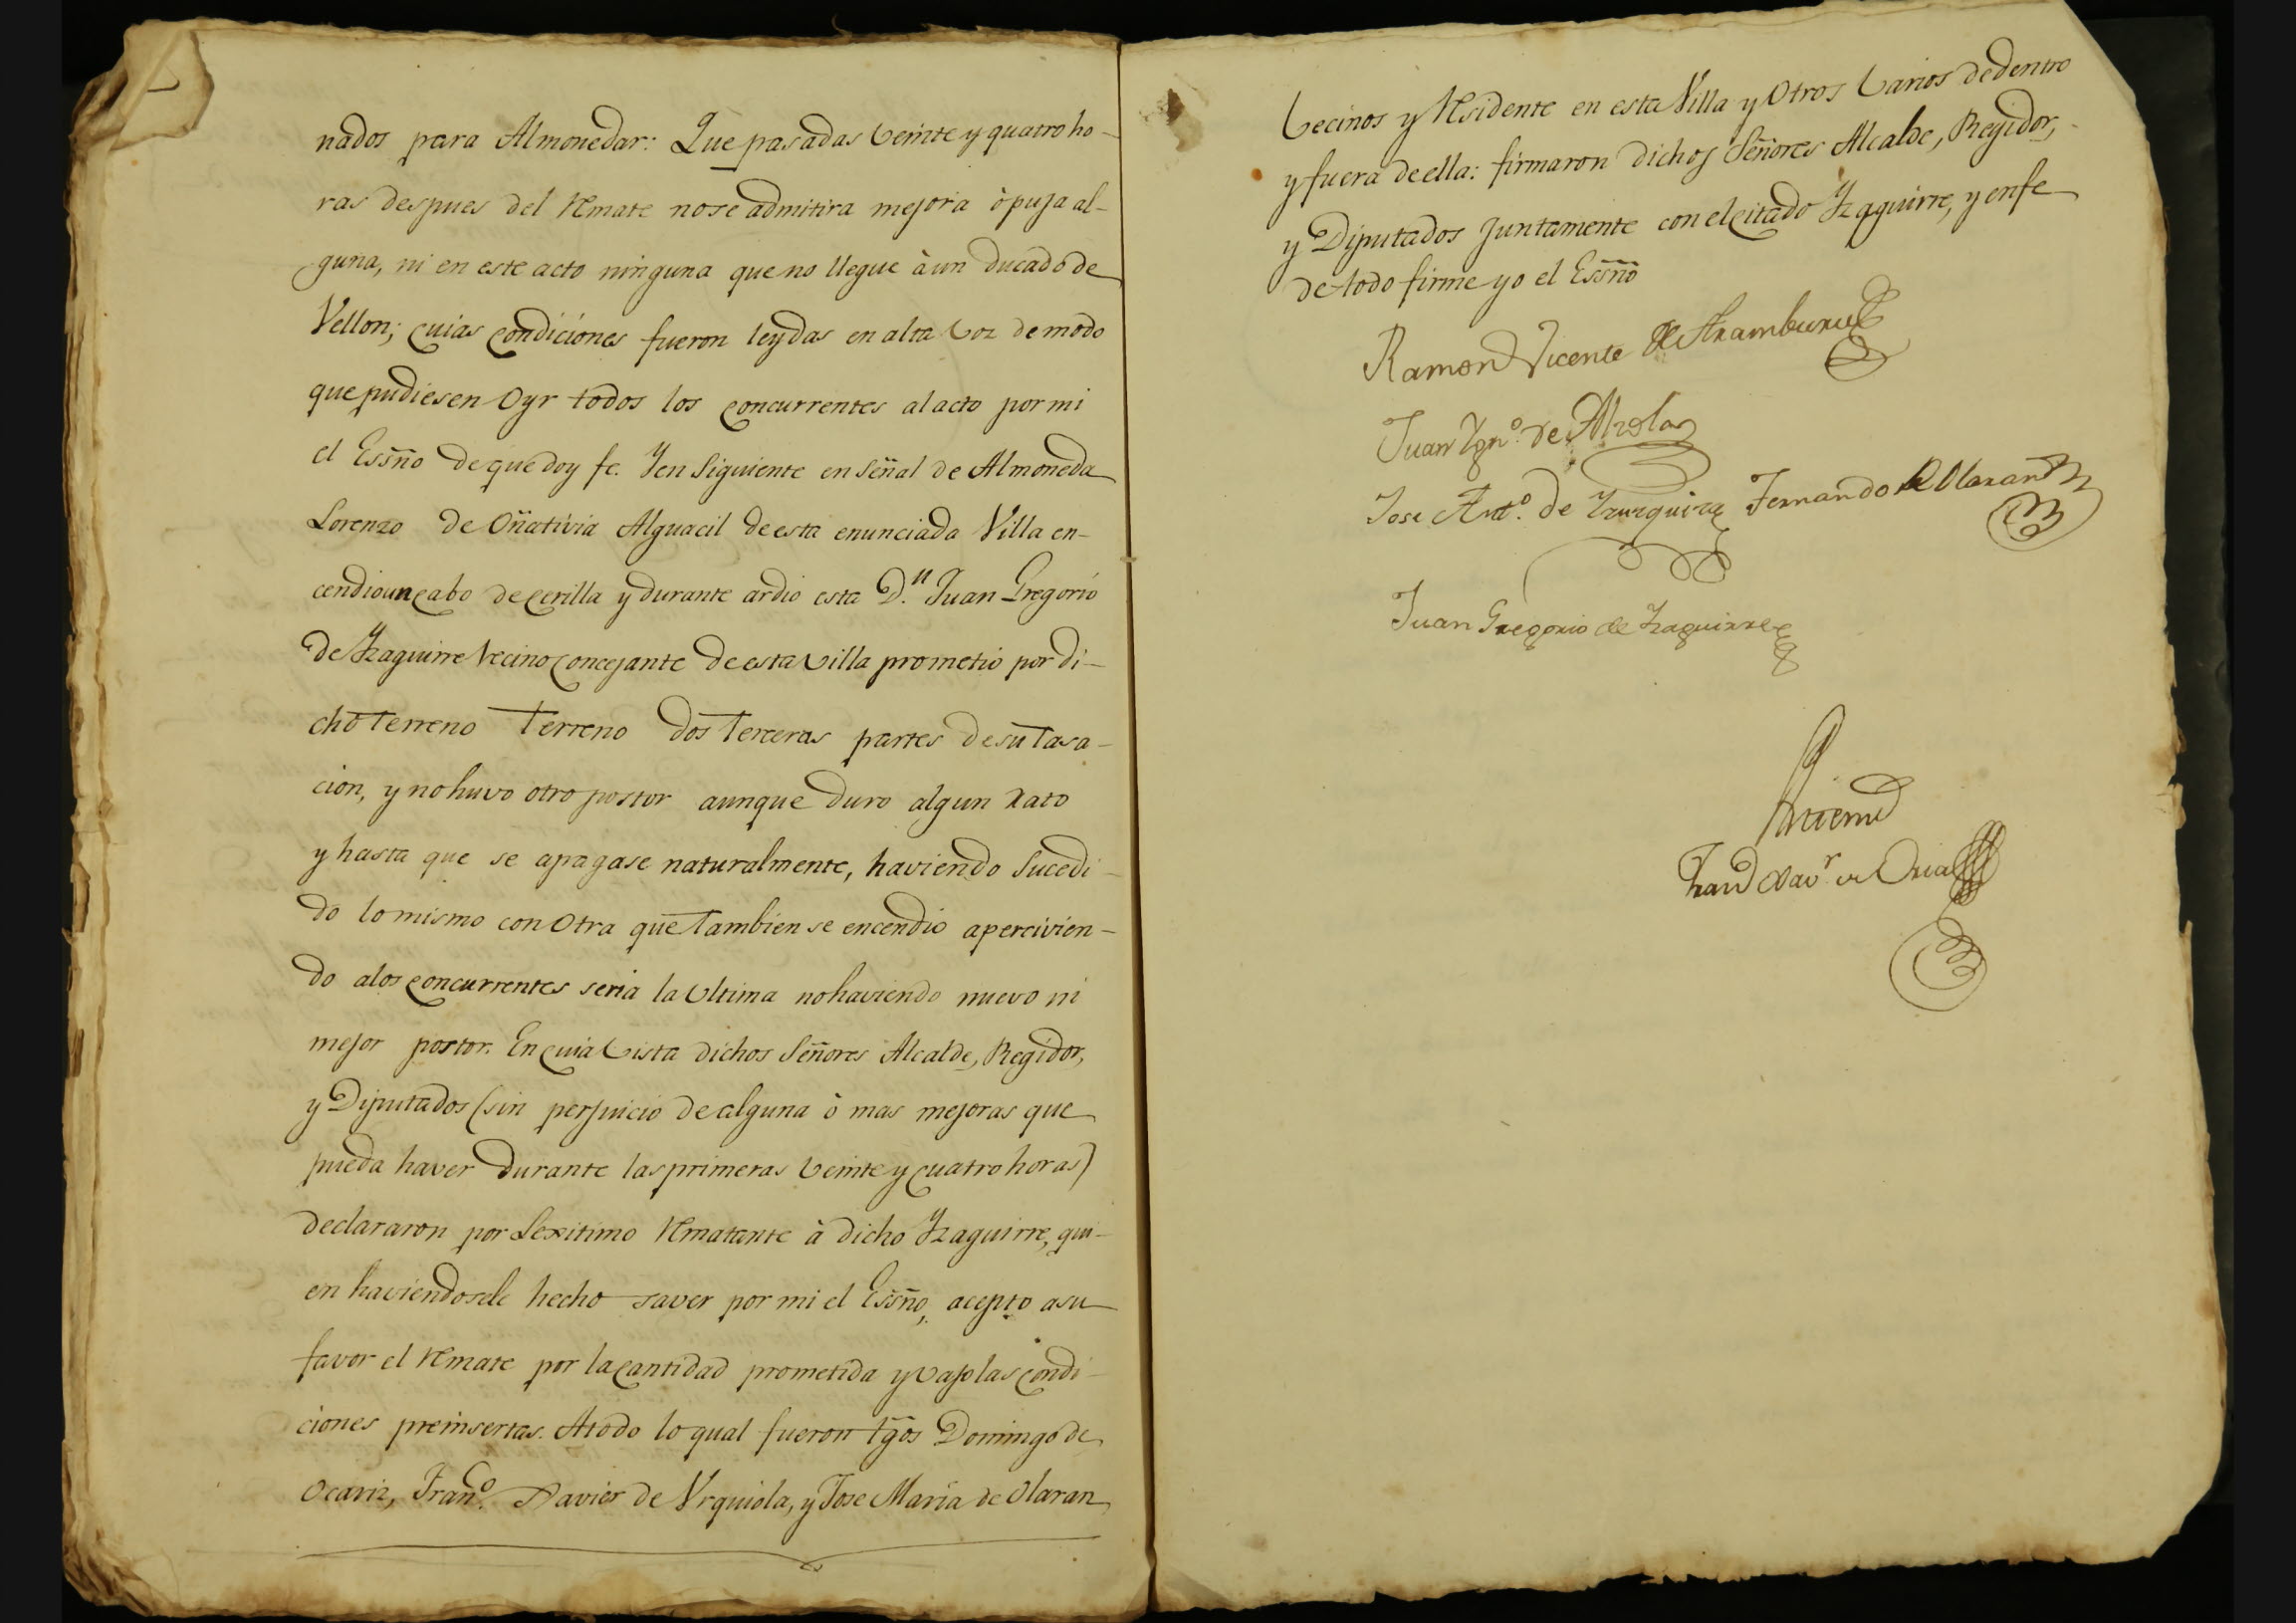 nados para Almonedar: Que pasadas veinte y quatro ho-
ras despues del Remate nose admitira mejora ò puja al-
guna, ni en este acto ninguna que no llegue à un ducado de
Vellon; cuias condiciones fueron leydas en alta voz de modo
que pudiesen Oyr todos los concurrentes al acto por mi
el Essño de que doy fe. Yen Siguiente en señal de Almoneda
Lorenzo de Oñativia Alguacil de esta enunciada Villa en-
cendio un cabo de cerilla y durante ardio esta D.n Juan Gregorio
de Yzaguirre vecino concejante de esta villa prometió por di-
cho Terreno Terreno dos Terceras partes de su Tasa-
cion, y no huvo otro postor aunque duro algun rato
y hasta que se apagase naturalmente, haviendo Sucedi-
do lo mismo con Otra que Tambien se encendio apercivien-
do alos concurrentes seria la Ultima no haviendo nuevo ni
mejor postor. En cuia vista dichos Señores Alcalde, Regidor,
y Diputados (sin perjuicio de alguna ò mas mejoras que
pueda haver durante las primeras veinte y cuatro horas)
declararon por Lexitimo Rematante à dicho Yzaguirre, qui-
en haviendosele hecho saver por mi el Essño, acepto a su
favor el Remate por la cantidad prometida y vajo las condi-
ciones preinsertas. A todo lo qual fueron tgõs Domingo de
Ocariz, Fran.co Xavier de Urquiola, y Jose Maria de Olaran
Vecinos y Residente en esta Villa y Otros varios de dentro
y fuera de ella: firmaron dichos Señores Alcalde, Regidor,
y Diputados Juntamente con el citado Yzaguirre, y en fe
de todo firme yo el Essño
Ramon Vicente de Aramburu
Juan Ygn.o de Alzola
Jose Ant.o de Yzurquiza Fernando de Olaran
Juan Gregorio de Yzaguirre
Antemi
Xav.r de Oria